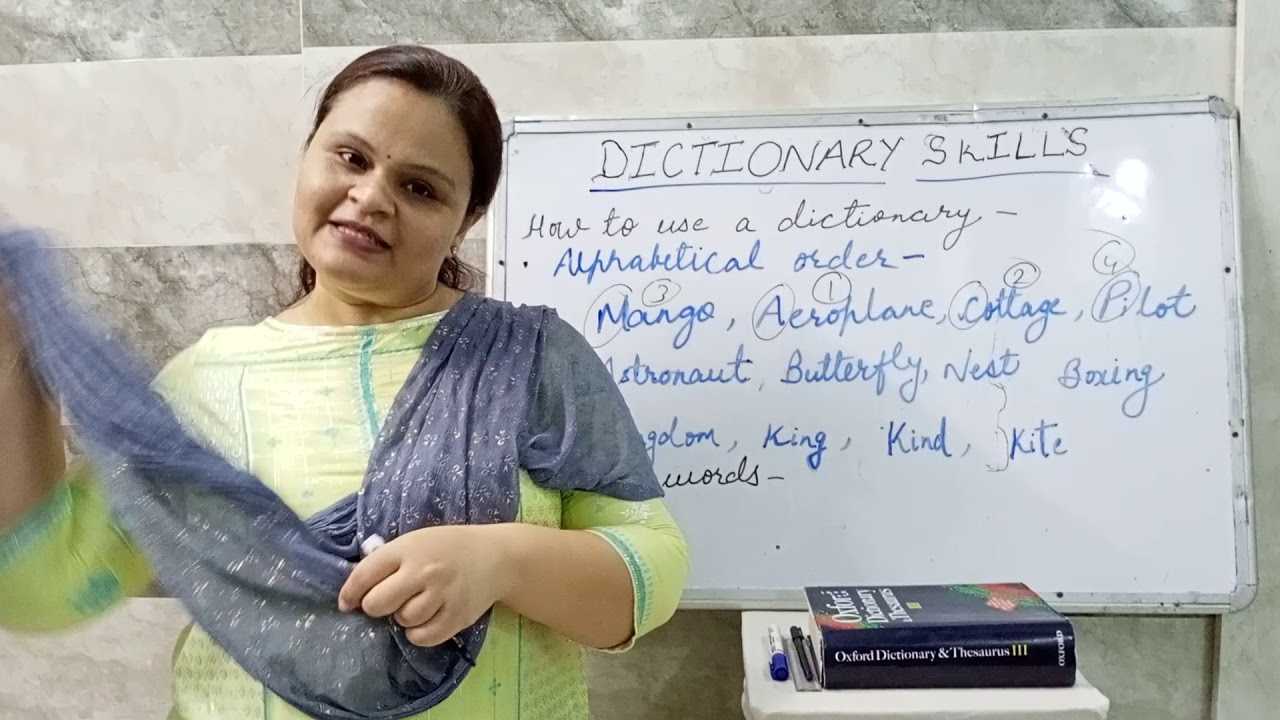 DICTIONARY SKILLS
How to use a dictionary -
• Alphabetical order -
3 1 2 4
Mango, Aeroplane, Cottage, Pilot
stronaut, Butterfly, Nest Boxing
gdom, King, Kind, Kite
words -
Oxford
Dictionary
& Thesaurus
III
Oxford Dictionary & Thesaurus III
OXFORD